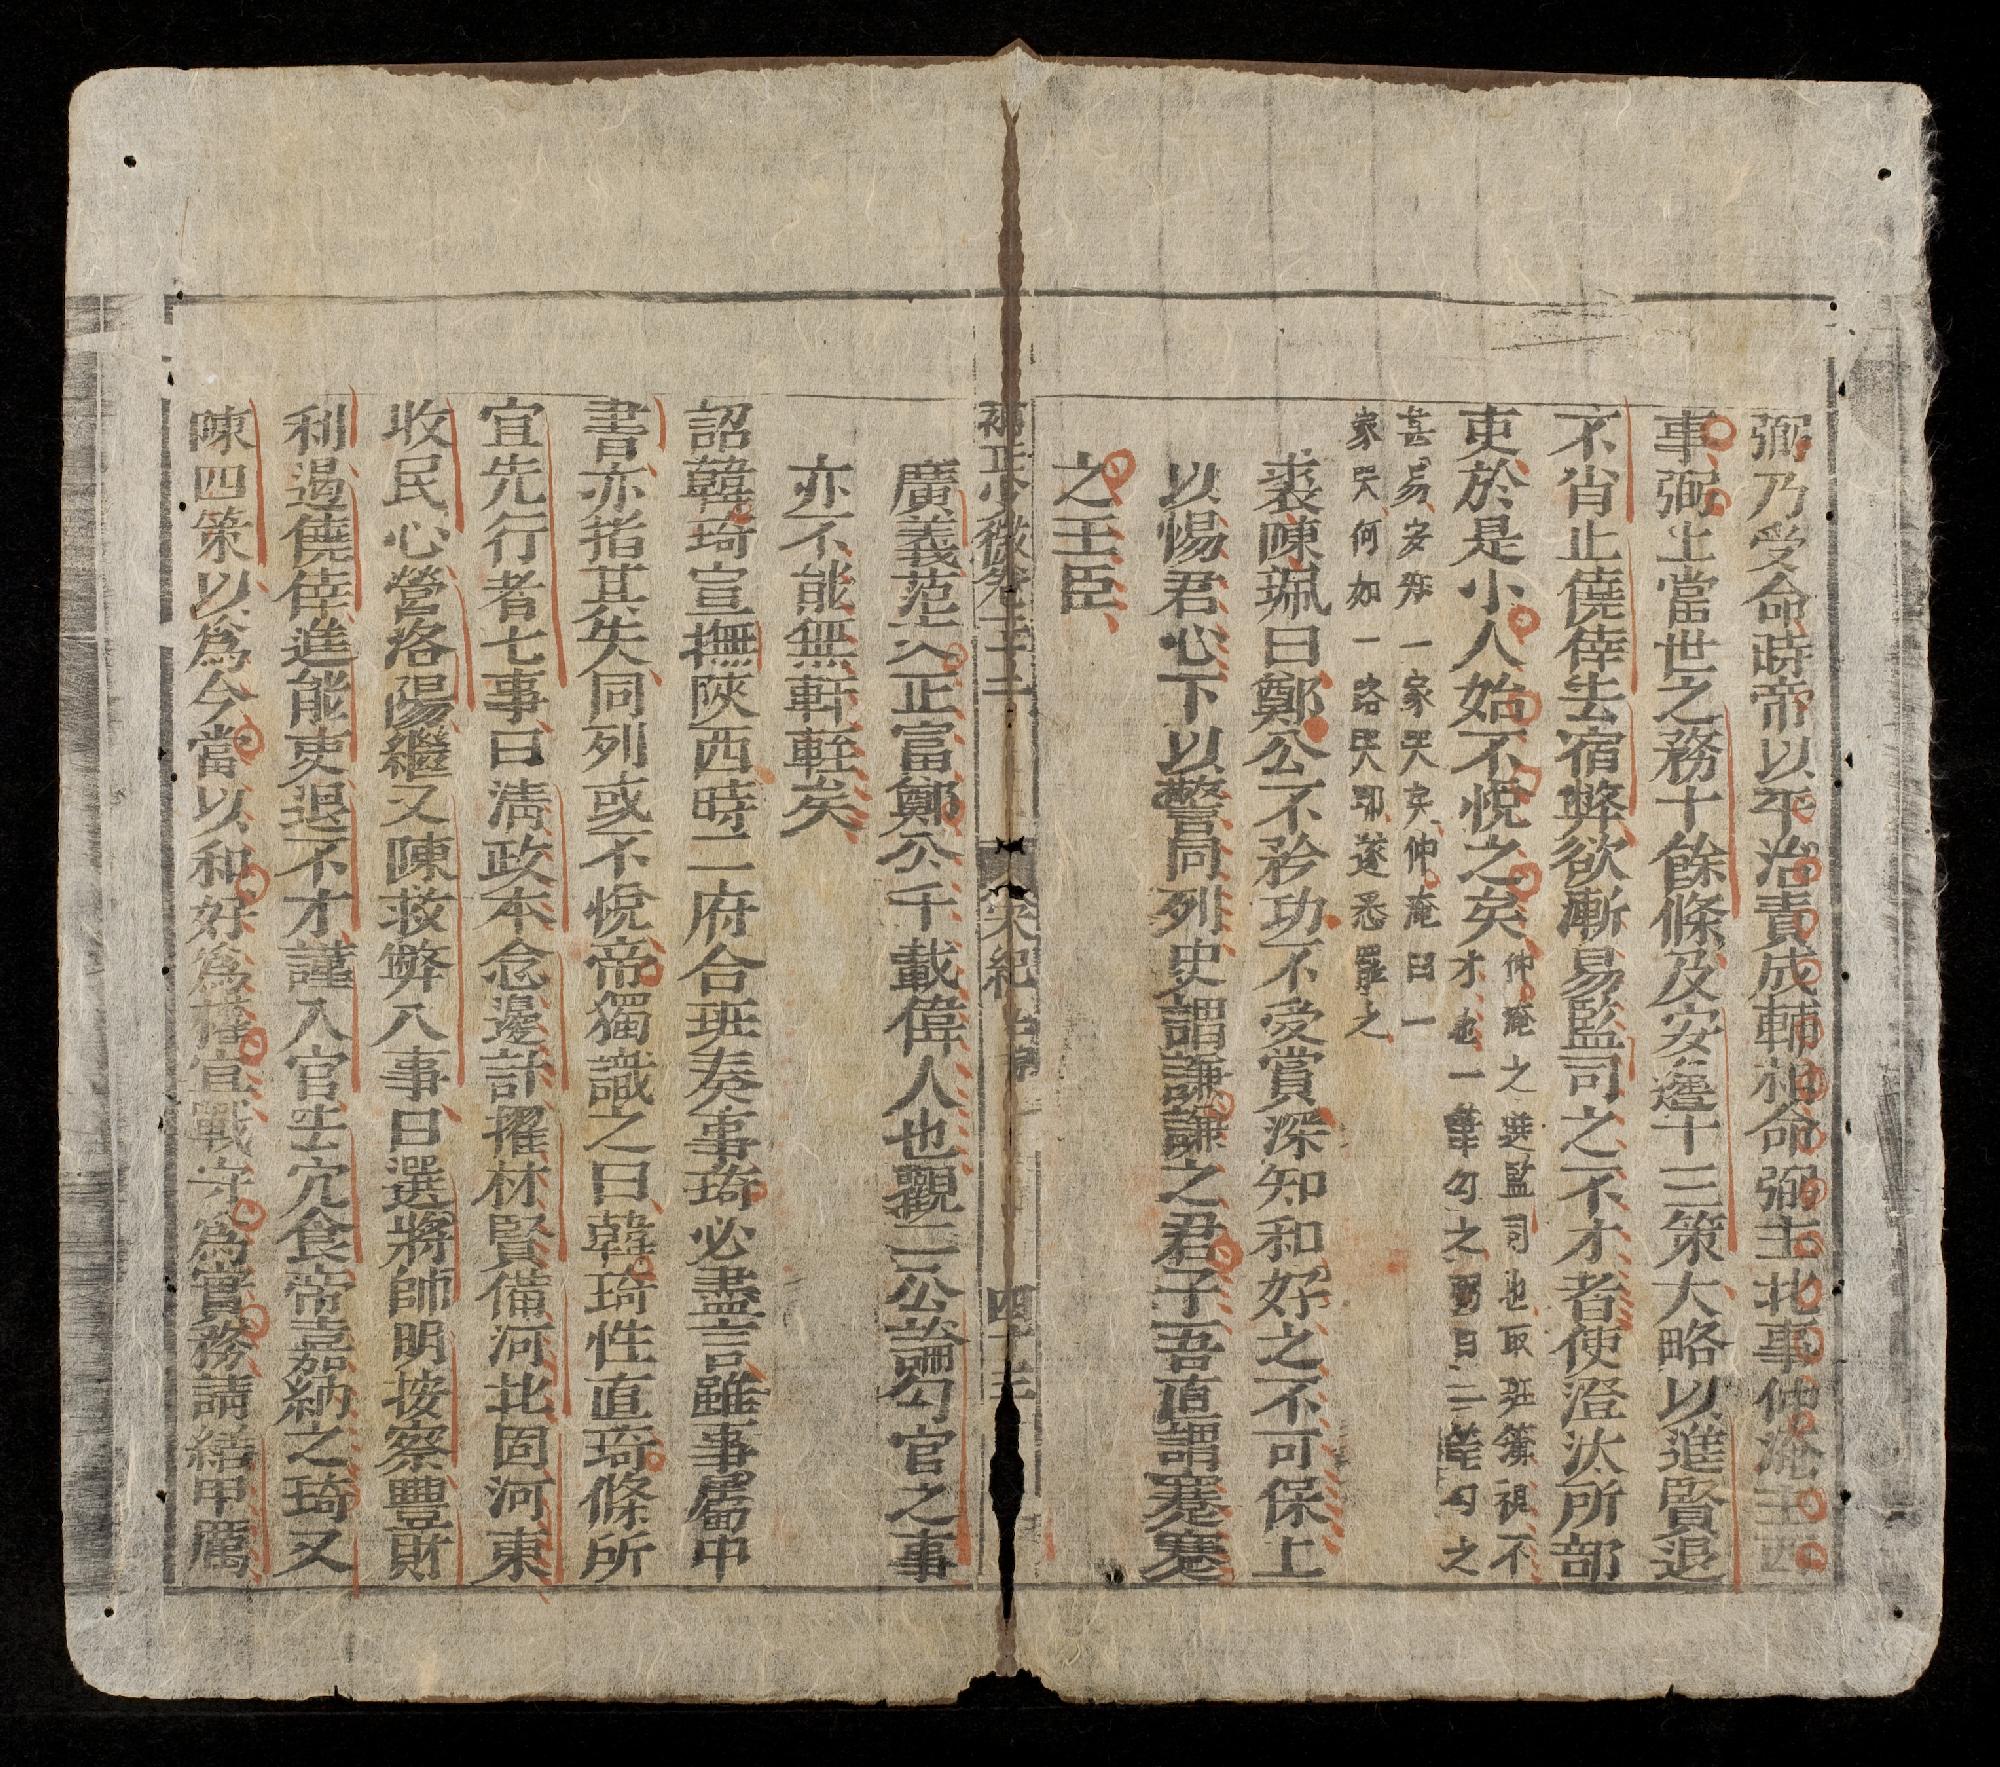 弼乃受命時帝以平治責成輔相命弼主北事仲淹主西
事弼上當世之務十餘條及安邊十三策大略以進賢退
不肖止僥倖去宿弊欲漸易監司之不才者使澄汰所部
吏於是小人始不悅之矣仲淹之選監司也取班簿視不
才也一筆勾之弼曰一筆勾之
甚易安知一家哭矣仲淹曰一
家哭何如一路哭耶遂悉罷之
裘陳珮曰鄭公不矜功不受賞深知和好之不可保上
以惕君心下以警同列史謂謙謙之君子吾直謂蹇蹇
之王臣
宋紀
廣義范文正富鄭公千載偉人也觀二公論勾官之事
亦不能無軒輊矣
詔韓琦宣撫陝西時二府合班奏事琦必盡言雖事屬中
書亦指其失同列或不悅帝獨識之曰韓琦性直琦條所
宜先行者七事曰清政本念邊計擢材賢備河北固河東
收民心營洛陽繼又陳救弊八事曰選將帥明按察豐財
利遏僥倖進能吏退不才謹入官去冗食帝嘉納之琦又
陳四策以為今當以和好為權宜戰守為實務請繕甲厲